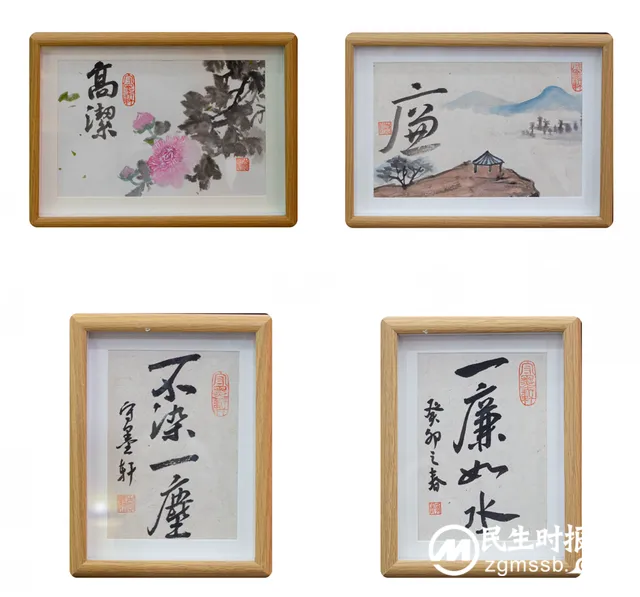 高潔
廉
不染一塵
守墨軒
一廉如水
癸卯之春
民生时报
zgmssb.c